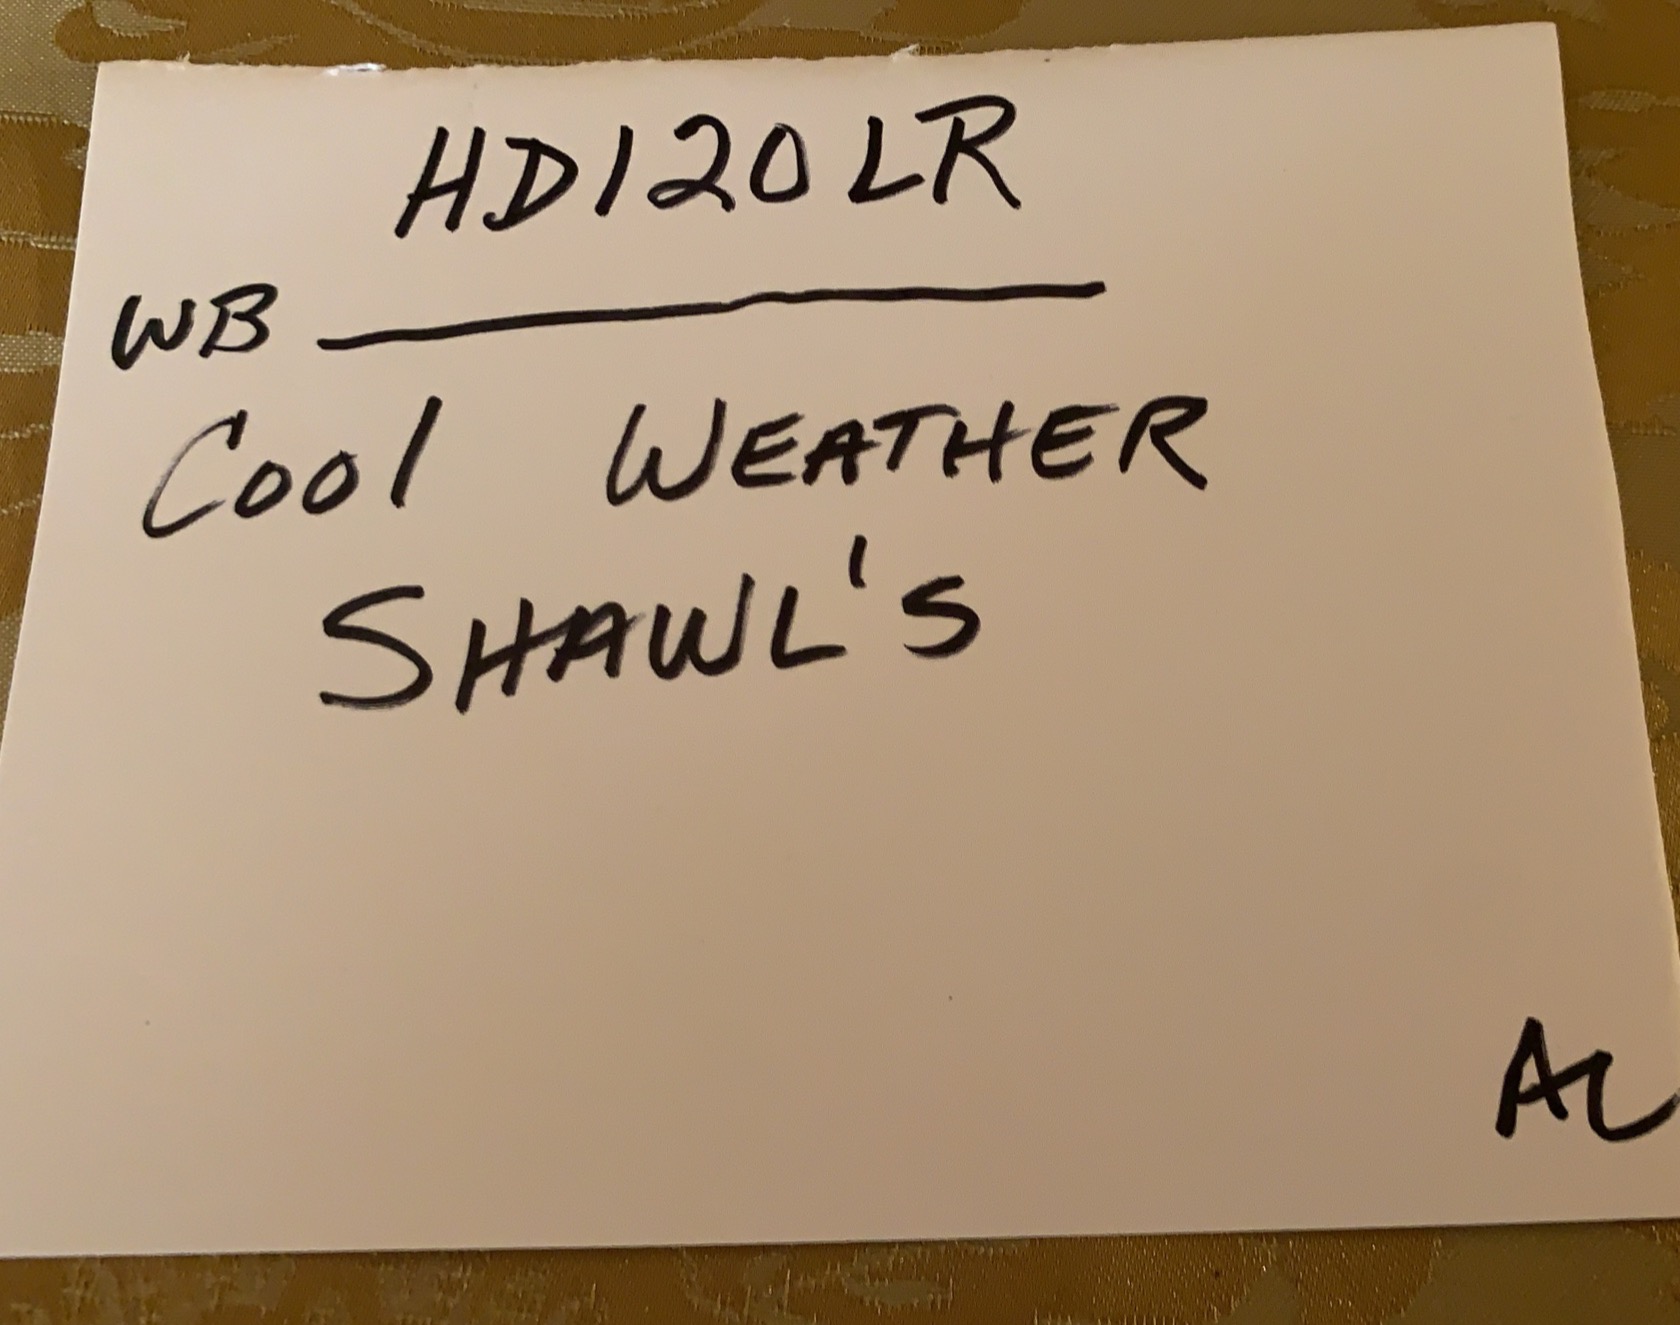 HD120LR
WB
Cool WEATHER
SHAWL'S
AL